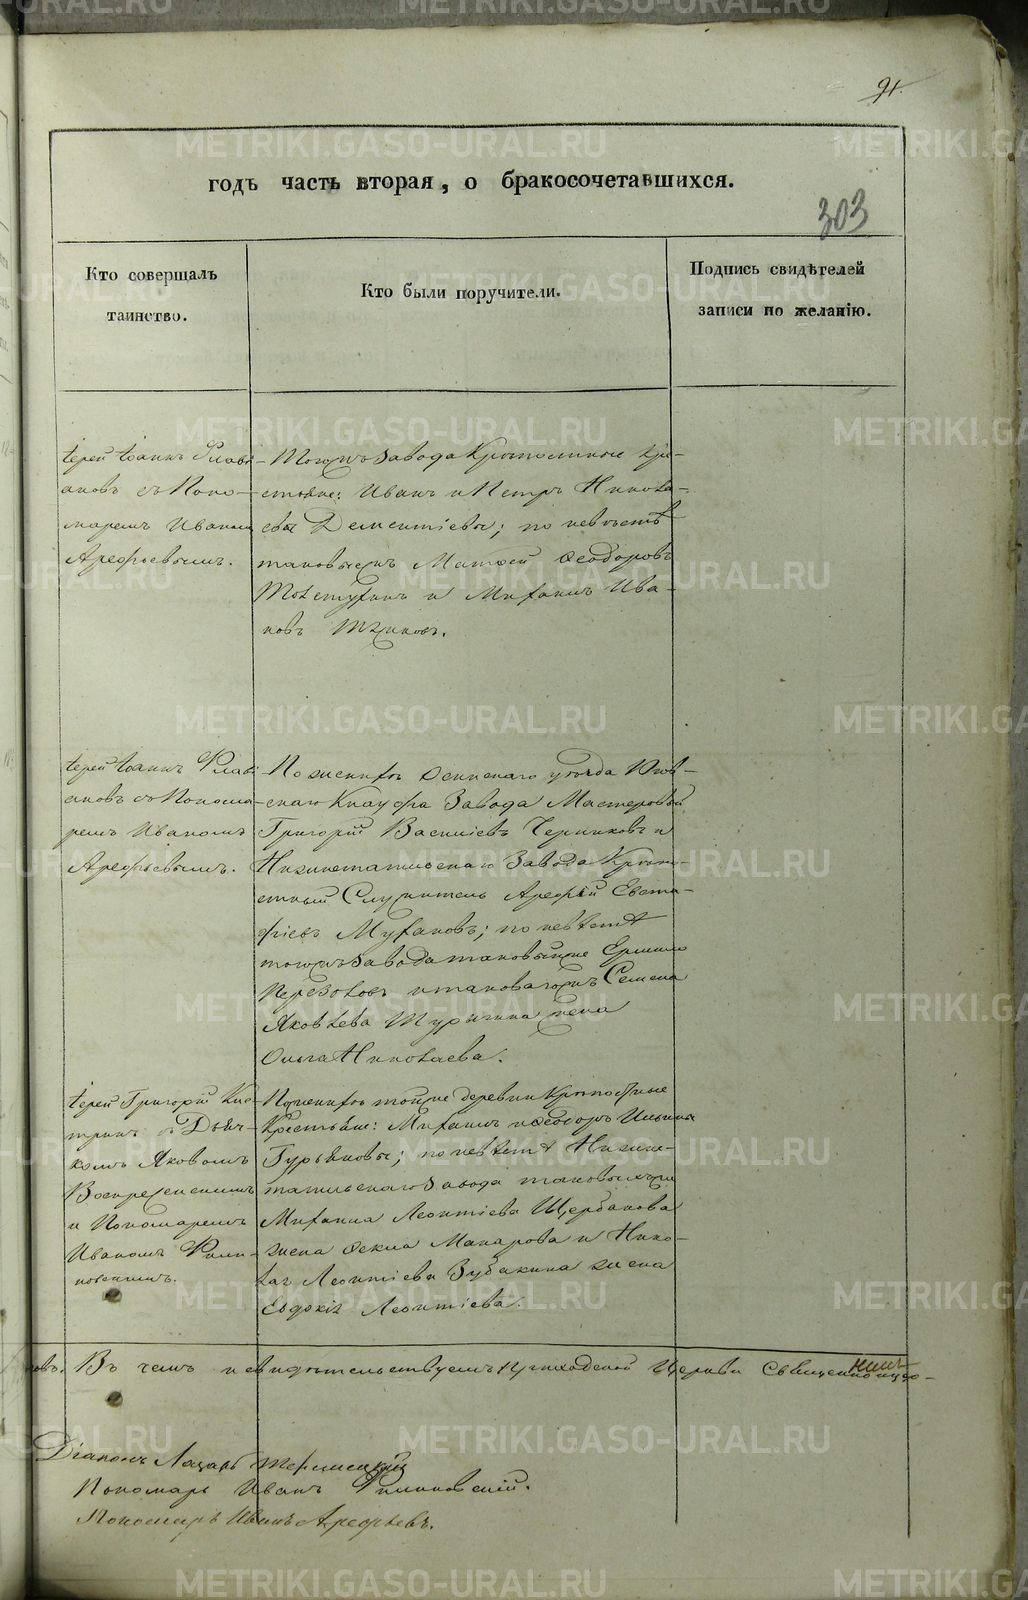 91.
годъ часть вторая, о бракосочетавшихся.
303
Кто совершалъ
таинство.
Кто были поручители.
Подпись свидѣтелей
записи по желанію.
Іерей Іоаннъ Флаві-
ановъ съ Поно-
маремъ Иваномъ
Арефьевымъ.
Тогожъ Завода Крѣпостные Кре-
стьяне: Иванъ и Петръ Никола-
евы Дементіевы; по невѣстѣ
таковыежъ Матѳей Ѳеодоровъ
и Михаилъ Ива-
новъ
Іерей Іоаннъ Флаві-
ановъ съ Понома-
ремъ Иваномъ
Арефьевымъ.
По женихѣ Осинскаго уѣзда Юго-
скаго Кнауфа Завода Мастеровый
Григорій Василіевъ Черниковъ и
Нижнетагильскаго Завода Крѣпо-
стный Служитель Арефій Евста-
фіевъ; по невѣстѣ
тогожъ Завода таковыеже
и таковагожъ Семена
Яковлева жена
Ольга Николаева.
Іерей Григорій
съ Дьяч-
комъ Яковомъ
Воскресенскимъ
и Пономаремъ
Иваномъ Фили-
повскимъ.
По женихѣ тойже деревни Крѣпостные
Крестьяне: Михаилъ и Ѳеодоръ Ильины
Гурьяновы; по невѣстѣ Нижне-
тагильскаго Завода таковыхъже
Михаила Леонтіева Щербакова
жена Ѳекла Макарова и Нико-
лая Леонтіева Зубакина жена
Евдокія Леонтіева.
Въ чемъ и свидѣтельствуемъ Приходской Церкви
Діаконъ Лазарь
Пономарь Иванъ Филиповскій.
Пономарь Иванъ Арефьевъ.
METRIKI.GASO-URAL.RU